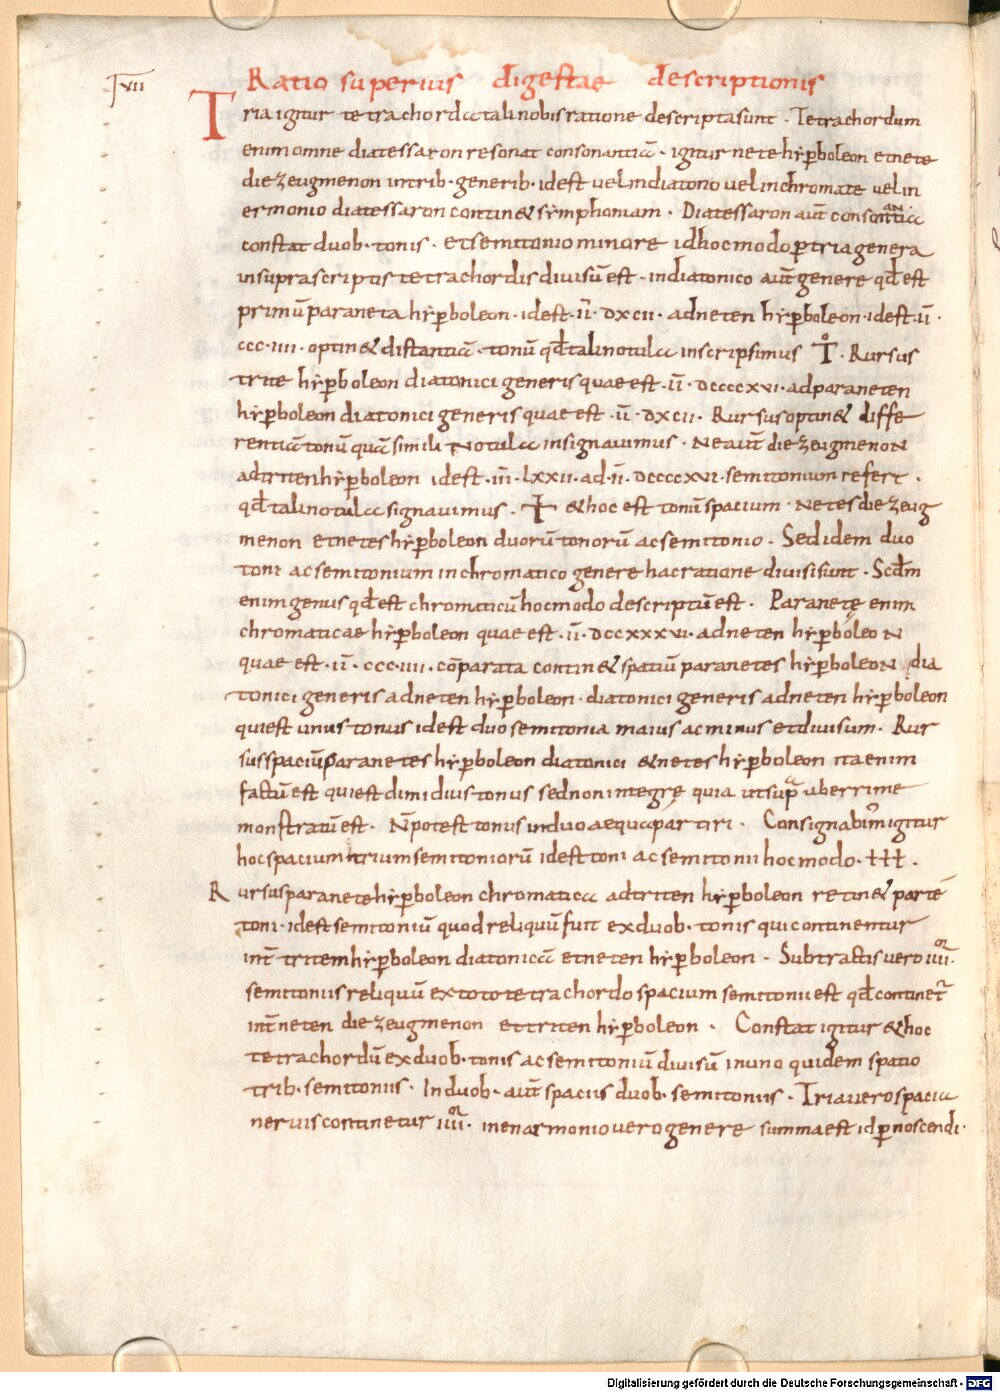 Ratio superius digestae descriptionis
VII
Tria igitur tetrachorda tali nobis ratione descripta sunt · Tetrachordum
enim omne diatessaron resonat consonantiā · igitur nete hyꝑboleon et nete
diezeugmenon in trib· generib· id est vel in diatono vel in chromate vel in
ermonio diatessaron contin& symphoniam · Diatessaron aut̄ consonantia
constat duob· tonis · et semitonio minore id hoc modo ꝑ tria genera
in suprascriptis tetrachordis divisū est · in diatonico aut̄ genere qd̄ est
primū paraneta hyꝑboleon · id est · īī · dxcii · ad neten hyꝑboleon · id est · īī ·
ccc·iiii · optin& distantiā · tonū qd̄ tali notula inscripsimus T · Rursus
trite hyꝑboleon diatonici generis quae est · īī · dccccxvi · ad paraneten
hyꝑboleon diatonici generis quae est · īī · dxcii · Rursus optin& diffe
rentiā tonū quā simili notula insignavimus · Ne aut̄ diezeugmenon
ad triten hyꝑboleon id est · īīī · lxxii · ad · īī · dccccxvi · semitonium refert ·
qd̄ tali notula signavimus · Ɨ &hoc est tonū spacium · Netes diezeug
menon et netes hyꝑboleon duorū tonorū ac semitonio · Sed idem duo
toni ac semitonium in chromatico genere hac ratione divisi sunt · Scd̄m
enim genus qd̄ est chromaticū hoc modo descriptū est · Paranetę enim
chromaticae hyꝑboleon quae est · īī · dccxxxvi · ad neten hyꝑboleon
quae est · īī · ccc·iiii · cōparata contin& spatiū paranetes hyꝑboleon dia
tonici generis ad neten hyꝑboleon · diatonici generis ad neten hyꝑboleon
qui est unus tonus id est duo semitonia maius ac minus et divisum · Rur
sus spaciū paranetes hyꝑboleon diatonici & netes hyꝑboleon ita enim
factū est qui est dimidius tonus sed non integrę quia ut supᵃ uberrime
monstratū est · N̄ potest tonus in duo aequa partiri · Consignabim᾿ igitur
hoc spacium trium semitoniorū id est toni ac semitonii hoc modo · ƗƗƗ ·
Rursus paranete hyꝑboleon chromatica ad triten hyꝑboleon retin& partē
toni · id est semitoniū quod reliquū fuit ex duob· tonis qui continentur
int̄ tritem hyꝑboleon diatonicā et neten hyꝑboleon · Subtractis vero iiii·ᵒʳ
semitoniis reliquū ex toto tetrachordo spacium semitonii est qd̄ continet᷑
int̄ neten diezeugmenon et triten hyꝑboleon · Constat igitur & hoc
tetrachordū ex duob· tonis ac semitoniū divisū in uno quidem spatio
trib· semitoniis · In duob· aut̄ spaciis duob· semitoniis · Tria vero spacia
nervis continetur iiii·ᵒʳ in enarmonio vero genere summa est id ꝑnoscendi·
Digitalisierung gefördert durch die Deutsche Forschungsgemeinschaft - DFG